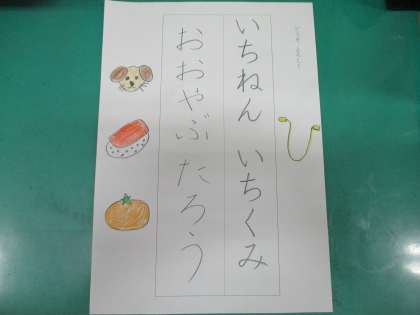 いちねん いちくみ
おおやぶ たろう